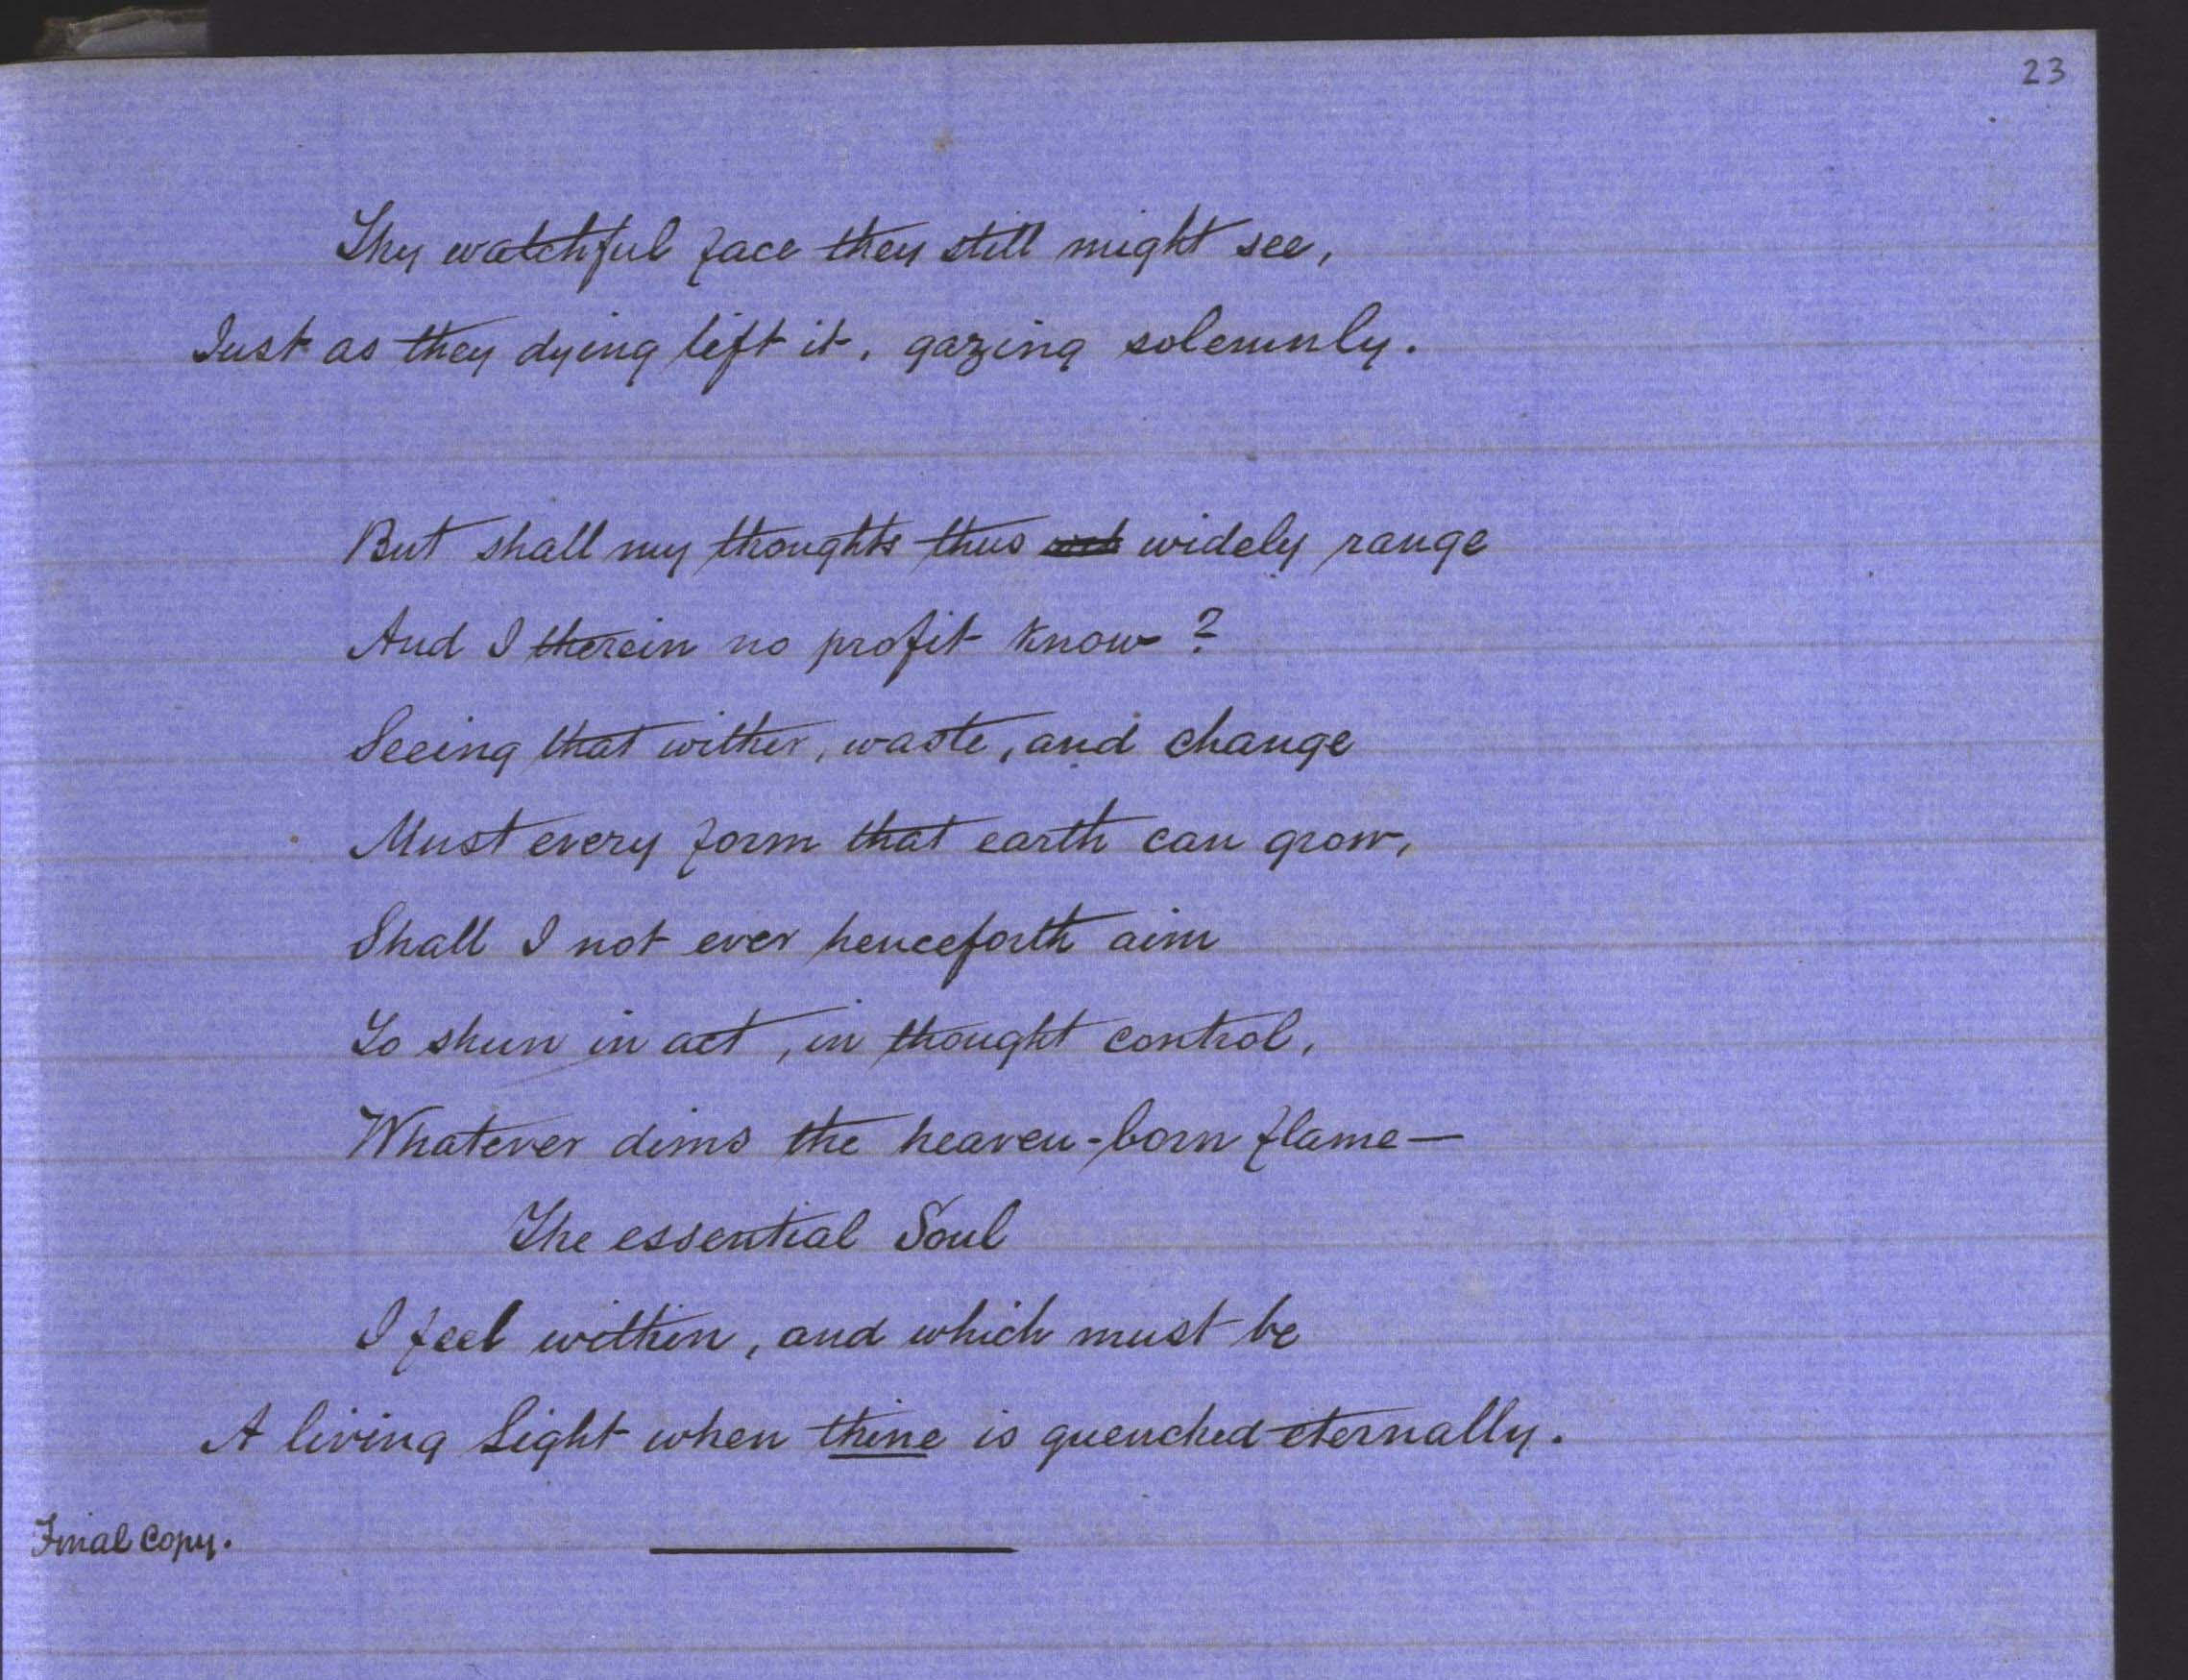 23
Thy watchful face they still might see,
Just as they dying left it, gazing solemnly.
But shall my thoughts thus widely range
And I therein no profit know?
Seeing that wither, waste, and change
Must every form that earth can grow,
Shall I not ever henceforth aim
To shun in act, in thought control,
Whatever dims the heaven-born flame—
The essential Soul
I feel within, and which must be
A living Light when thine is quenched eternally.
Final Copy.